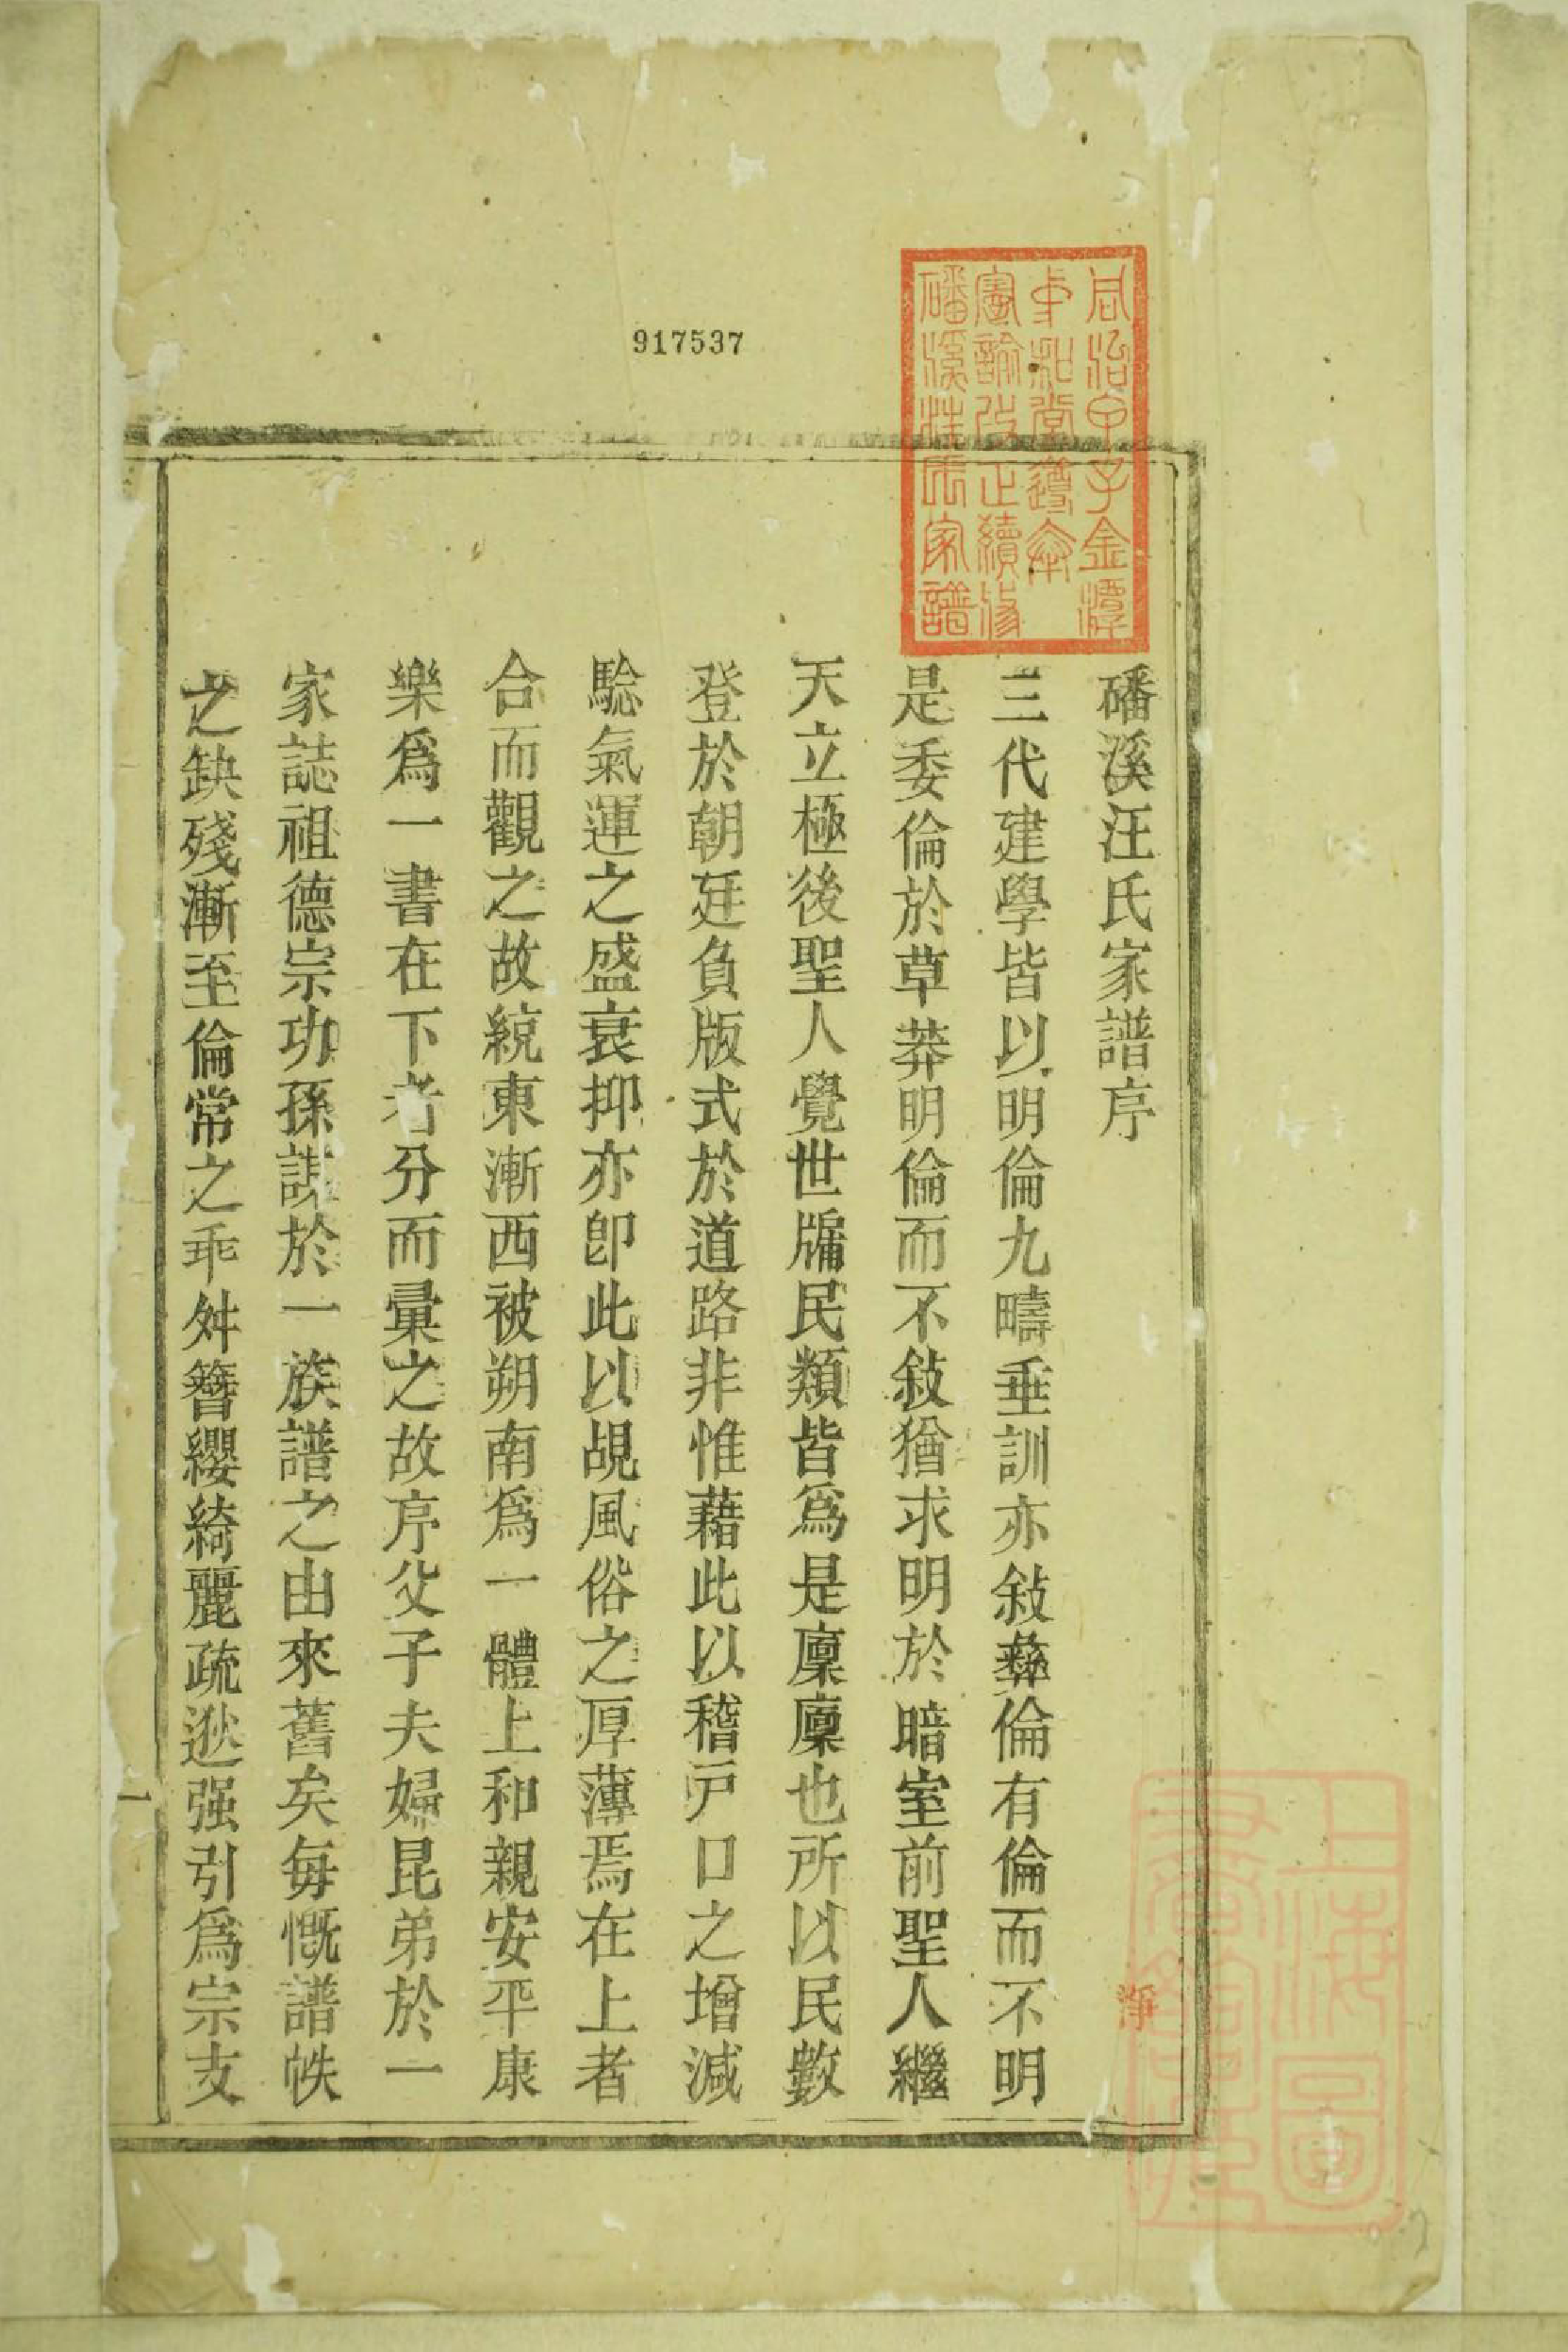 917537
磻溪汪氏家譜序
三代建學皆以明倫九疇垂訓亦敍彞倫有倫而不明
是委倫於草莽明倫而不敍猶求明於暗室前聖人繼
天立極後聖人覺世牖民類皆爲是廩廩也所以民數
登於朝廷負版式於道路非惟藉此以稽戸口之增減
騐氣運之盛衰抑亦卽此以覘風俗之厚薄焉在上者
合而觀之故統東漸西被朔南爲一體上和親安平康
樂爲一書在下者分而彙之故序父子夫婦昆弟於一
家誌祖德宗功孫謀於一族譜之由來舊矣每慨譜帙
之缺殘漸至倫常之乖舛簪纓綺麗疏逖强引爲宗支
一
同治甲子金潭
孝和堂遵奉
憲諭改正續修
磻溪汪氏家譜
淨
上海圖
書館藏